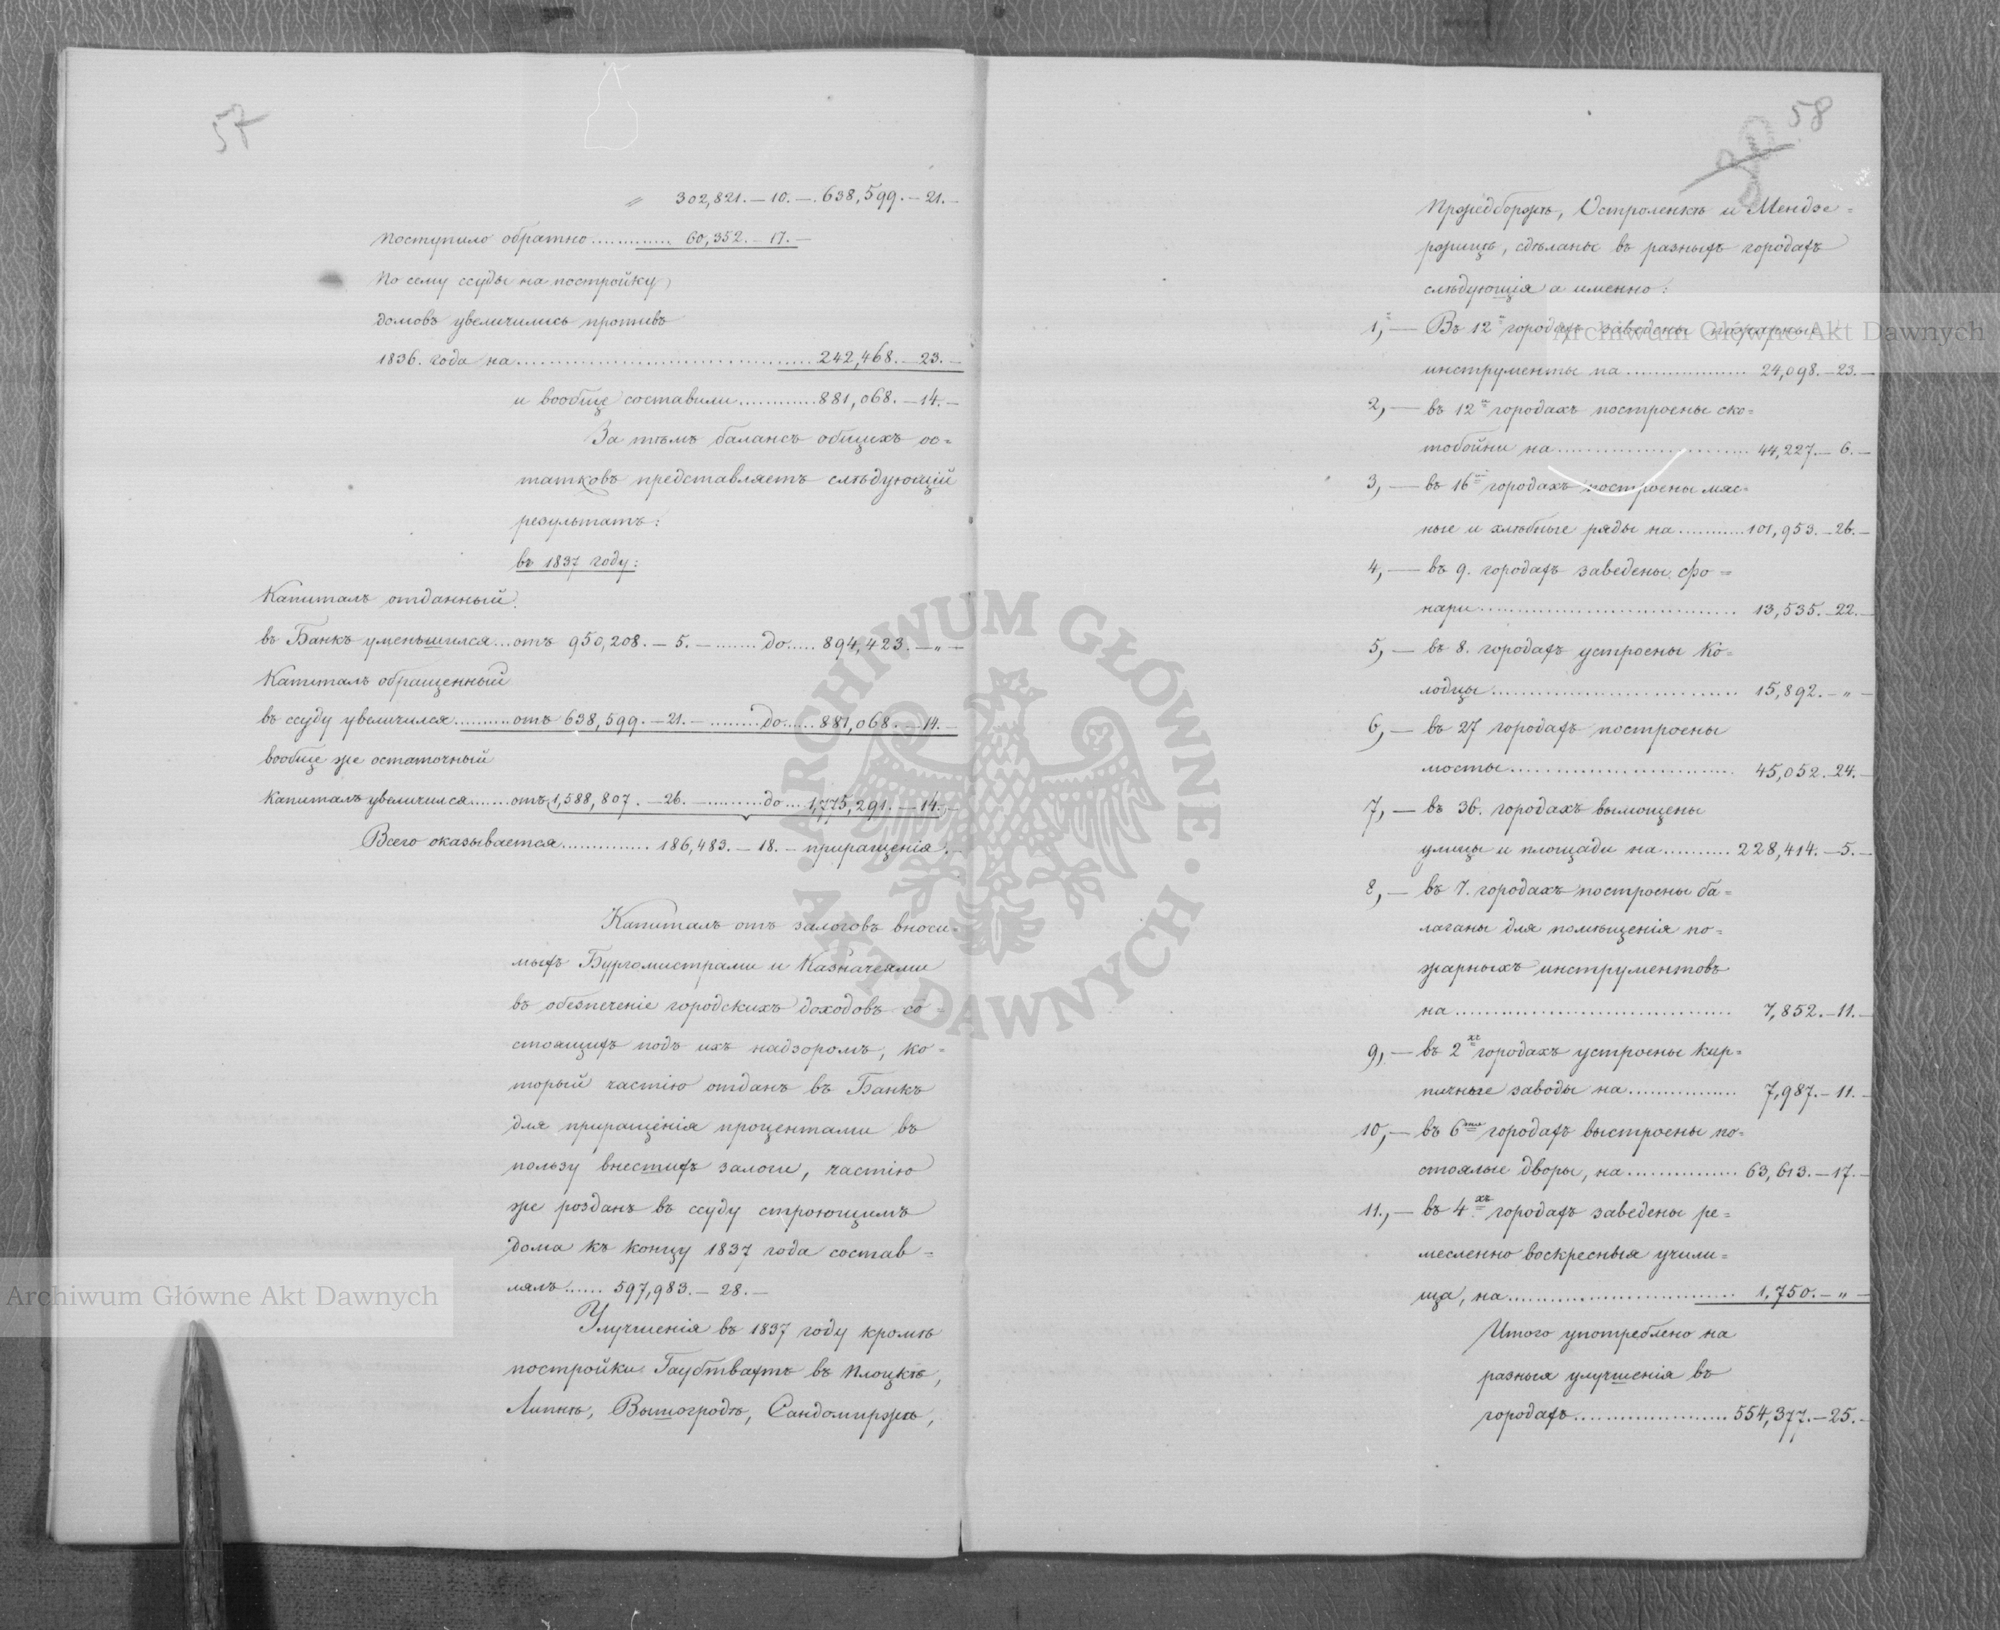 57
302,821. — 10. — 638,599. — 21. —
Поступило обратно ............ 60,352. — 17. —
По сему ссуды на постройку
домовъ увеличились противъ
1836. года на .................................... 242,468. — 23. —
и вообще составили ............ 881,068. — 14. —
За тѣмъ балансъ общихъ ос=
татковъ представляетъ слѣдующій
результатъ:
въ 1837 году:
Капиталъ отданный
въ Банкъ уменьшился ... отъ 950,208. — 5. — ........ до ..... 894,423. — „ —
Капиталъ обращенный
въ ссуду увеличился .......... отъ 638,599. — 21. — ......... до ...... 881,068. — 14. —
вообще же остаточный
Капиталъ увеличился ....... отъ 1,588,807. — 26. — .......... до .... 1,775,291. — 14. —
Всего оказывается .............. 186,483. — 18. — приращенія.
Капиталъ отъ залоговъ вноси=
мыхъ Бургомистрами и Казначеями
въ обезпеченіе городскихъ доходовъ со=
стоящихъ подъ ихъ надзоромъ, ко=
торый частію отданъ въ Банкъ
для приращенія процентами въ
пользу внесшихъ залоги, частію
же розданъ въ ссуду строющимъ
дома къ концу 1837 года состав=
лялъ ...... 597,983. — 28. —
Улучшенія въ 1837 году кромѣ
постройки Гаубтвахтъ въ Плоцкѣ,
Липнѣ, Вышогродѣ, Сандомирѣ,
58
Пржедборжѣ, Остроленкѣ и Мендзе=
ржицѣ, сдѣланы въ разныхъ городахъ
слѣдующія а именно:
1, — Въ 12 городахъ заведены пожарные
инструменты на .................. 24,098. — 23. —
2, — въ 12 городахъ построены ско=
тобойни на ........................... 44,227. — 6. —
3, — въ 16 городахъ построены мяс=
ные и хлѣбные ряды на .......... 101,953. — 26. —
4, — въ 9. городахъ заведены фо=
нари .................................... 13,535. — 22. —
5, — въ 8. городахъ устроены ко=
лодцы .................................. 15,892. — „ —
6, — въ 27 городахъ построены
мосты .................................. 45,052. — 24. —
7, — въ 36. городахъ вымощены
улицы и площади на .......... 228,414. — 5. —
8, — въ 7. городахъ построены ба=
лаганы для помѣщенія по=
жарныхъ инструментовъ
на ....................................... 7,852. — 11. —
9, — въ 2хъ городахъ устроены кир=
пичные заводы на ................ 7,987. — 11. —
10, — въ 6ти городахъ выстроены по=
стоялые дворы, на ................ 63,613. — 17. —
11., — въ 4.хъ городахъ заведены ре=
месленно воскресныя учили=
ща, на ................................. 1,750. — „ —
Итого употреблено на
разныя улучшенія въ
городахъ ...................... 554,377. — 25. —
Archiwum Główne Akt Dawnych
Archiwum Główne Akt Dawnych
ARCHIWUM GŁÓWNE · AKT DAWNYCH ·